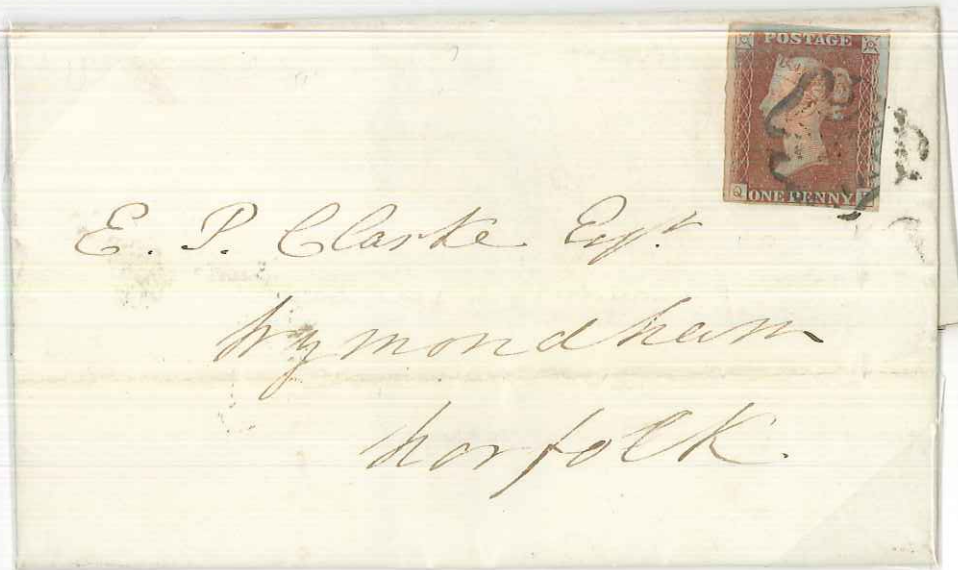 POSTAGE
Q
ONE PENNY
E. P. Clarke Esqr
Wymondham
Norfolk.